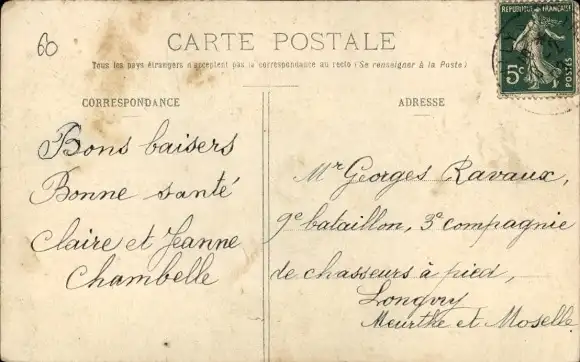 60
CARTE POSTALE
Tous les pays étrangers n'acceptent pas la correspondance au recto (Se renseigner à la Poste)
CORRESPONDANCE
Bons baisers
Bonne santé
Claire et Jeanne
Chambelle
ADRESSE
Mr Georges Ravaux,
9e bataillon, 3e compagnie
de chasseurs à pied,
Longwy
Meurthe et Moselle
REPUBLIQUE FRANÇAISE
5c